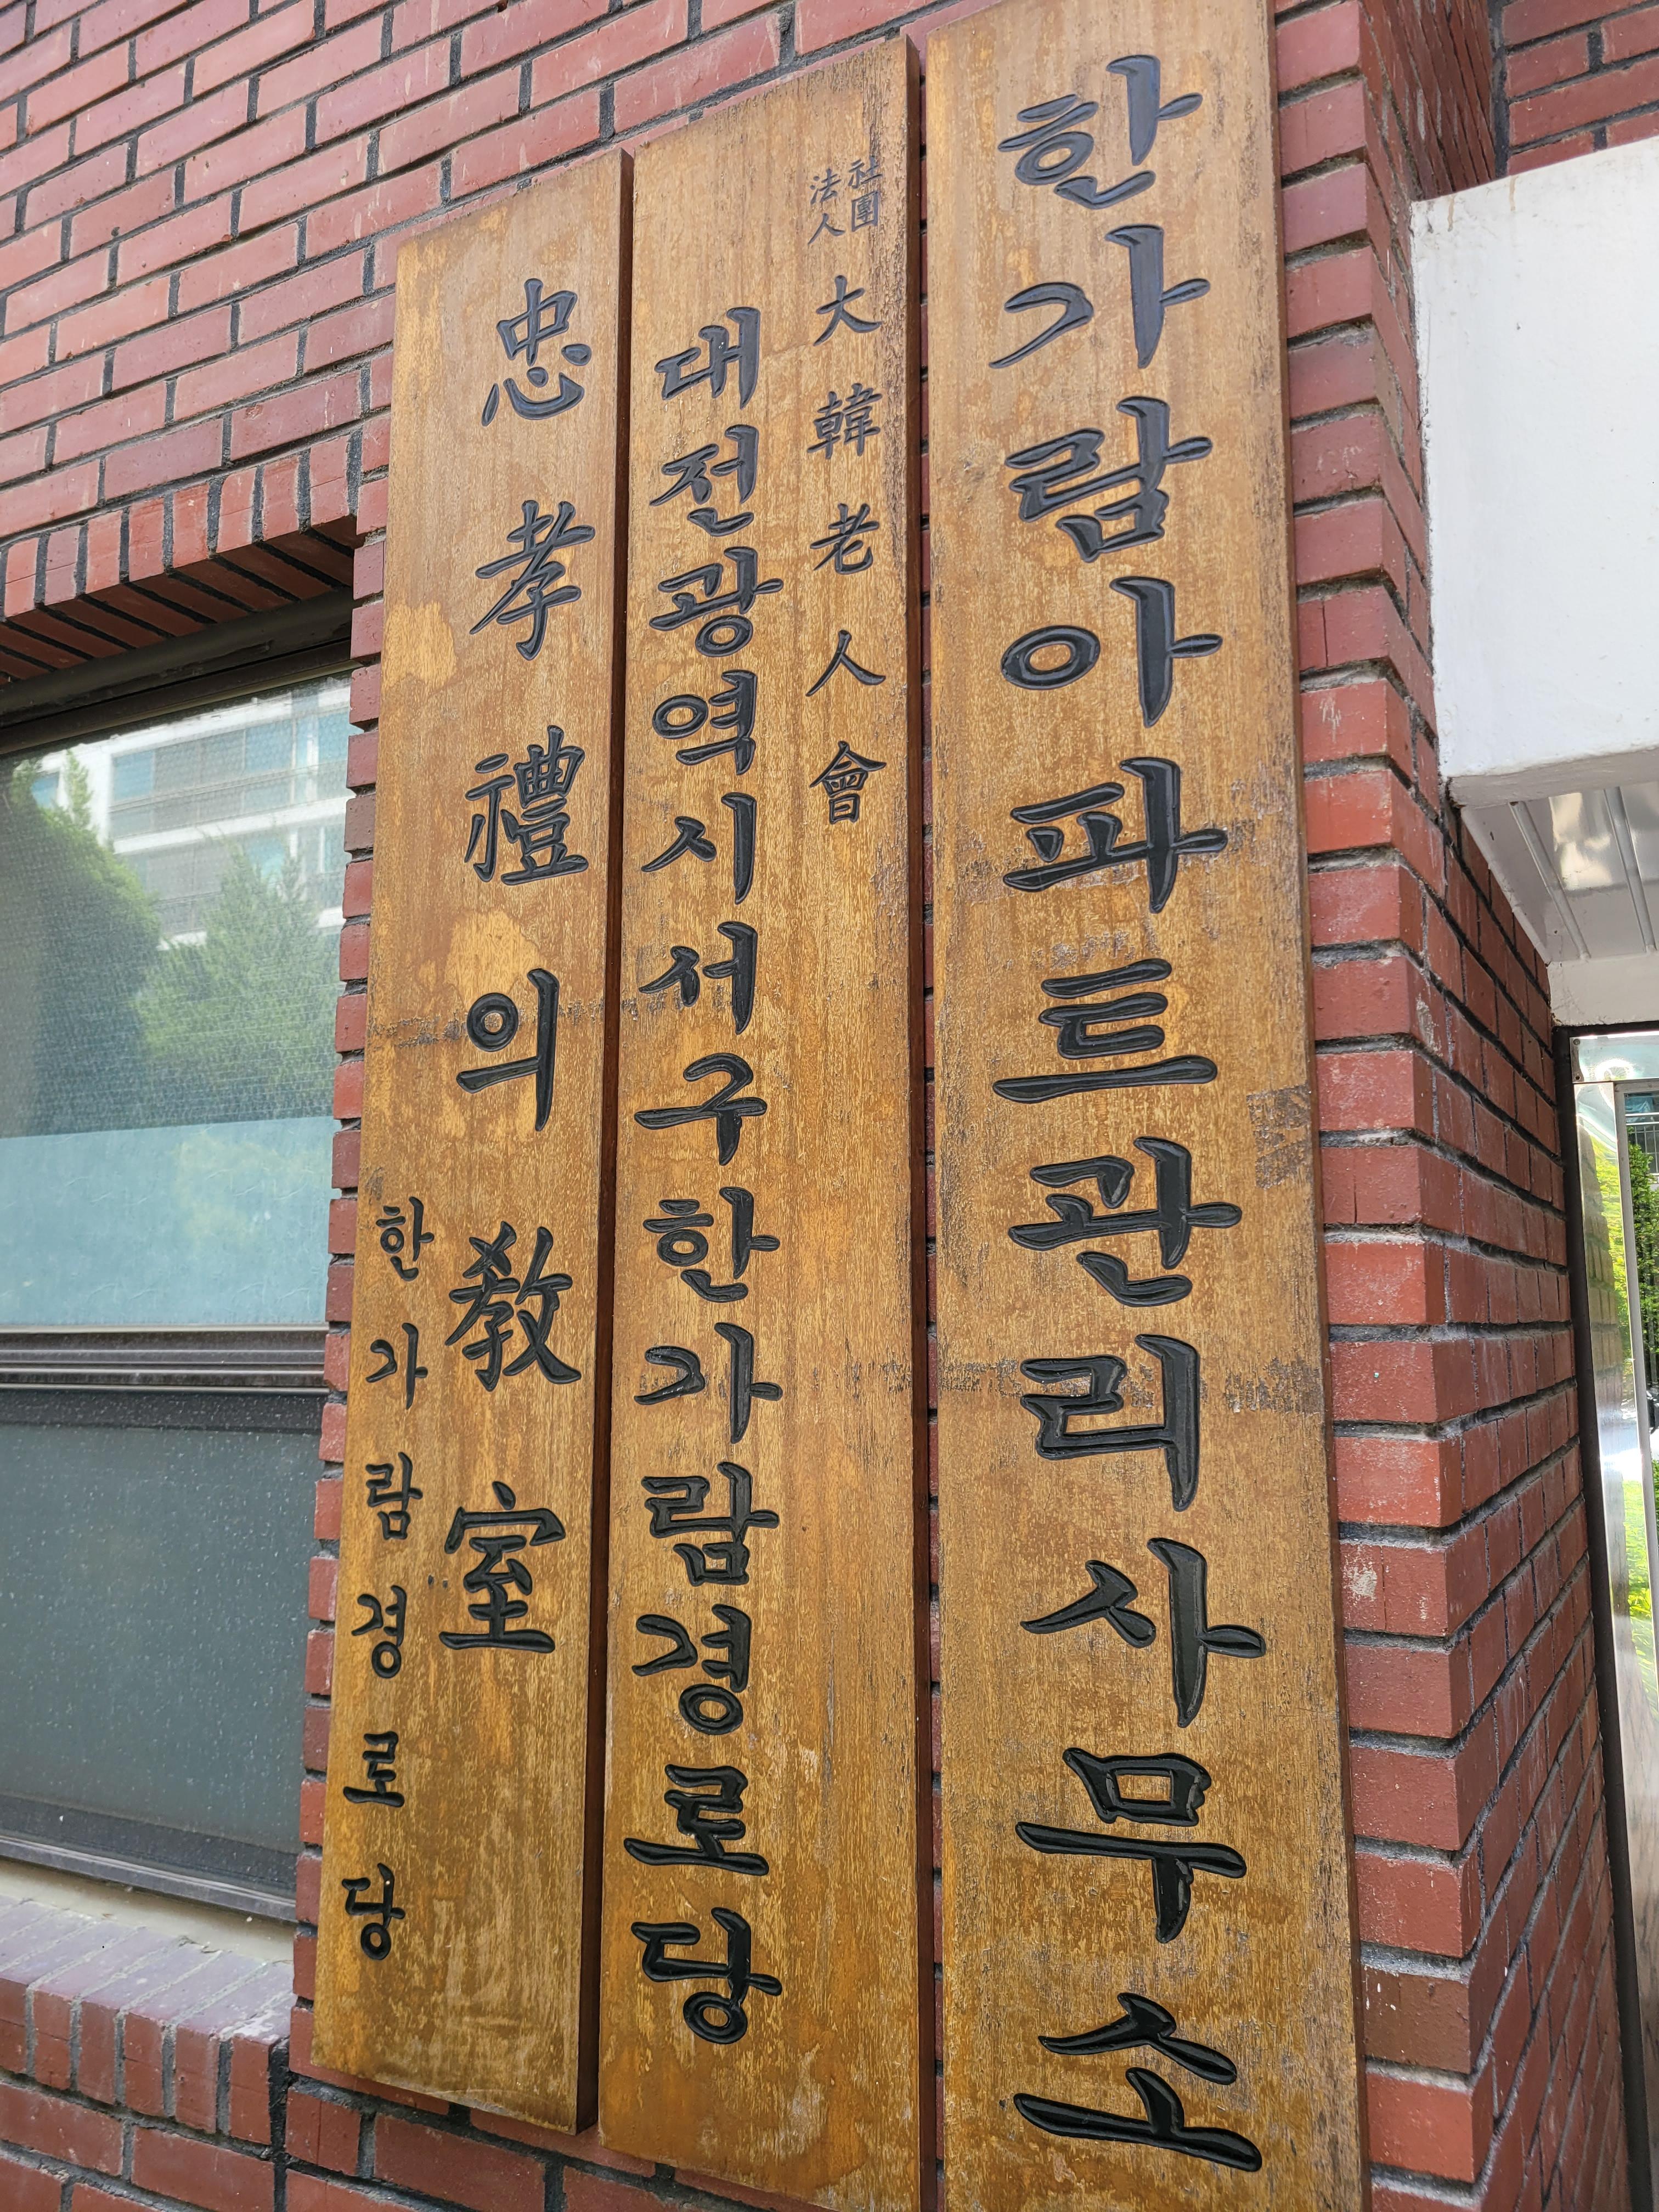 한가람아파트관리사무소
社團
法人
大韓老人會
대전광역시서구한가람경로당
忠孝禮의敎室
한가람경로당